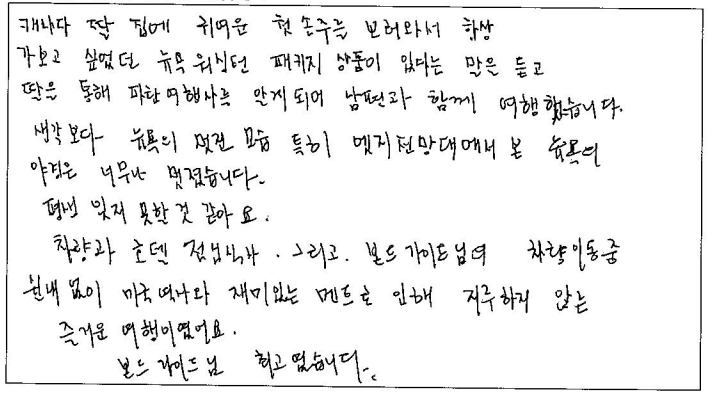 캐나다 딸 집에 귀여운 첫 손주를 보러와서 항상
가보고 싶었던 뉴욕 워싱턴 패키지 상품이 있다는 말을 듣고
딸은 통해 파란여행사를 알게되어 남편과 함께 여행했습니다.
생각보다 뉴욕의 멋진 모습 특히 엣지전망대에서 본 뉴욕의
야경은 너무나 멋졌습니다.
평생 잊지 못할것 같아요.
차량과 호텔 점심식사 . 그리고. 가이드님의 차량이동중
없이 미국역사와 재미있는 멘트로 인해 지루하지 않는
즐거운 여행이였어요.
가이드님 최고였습니다.